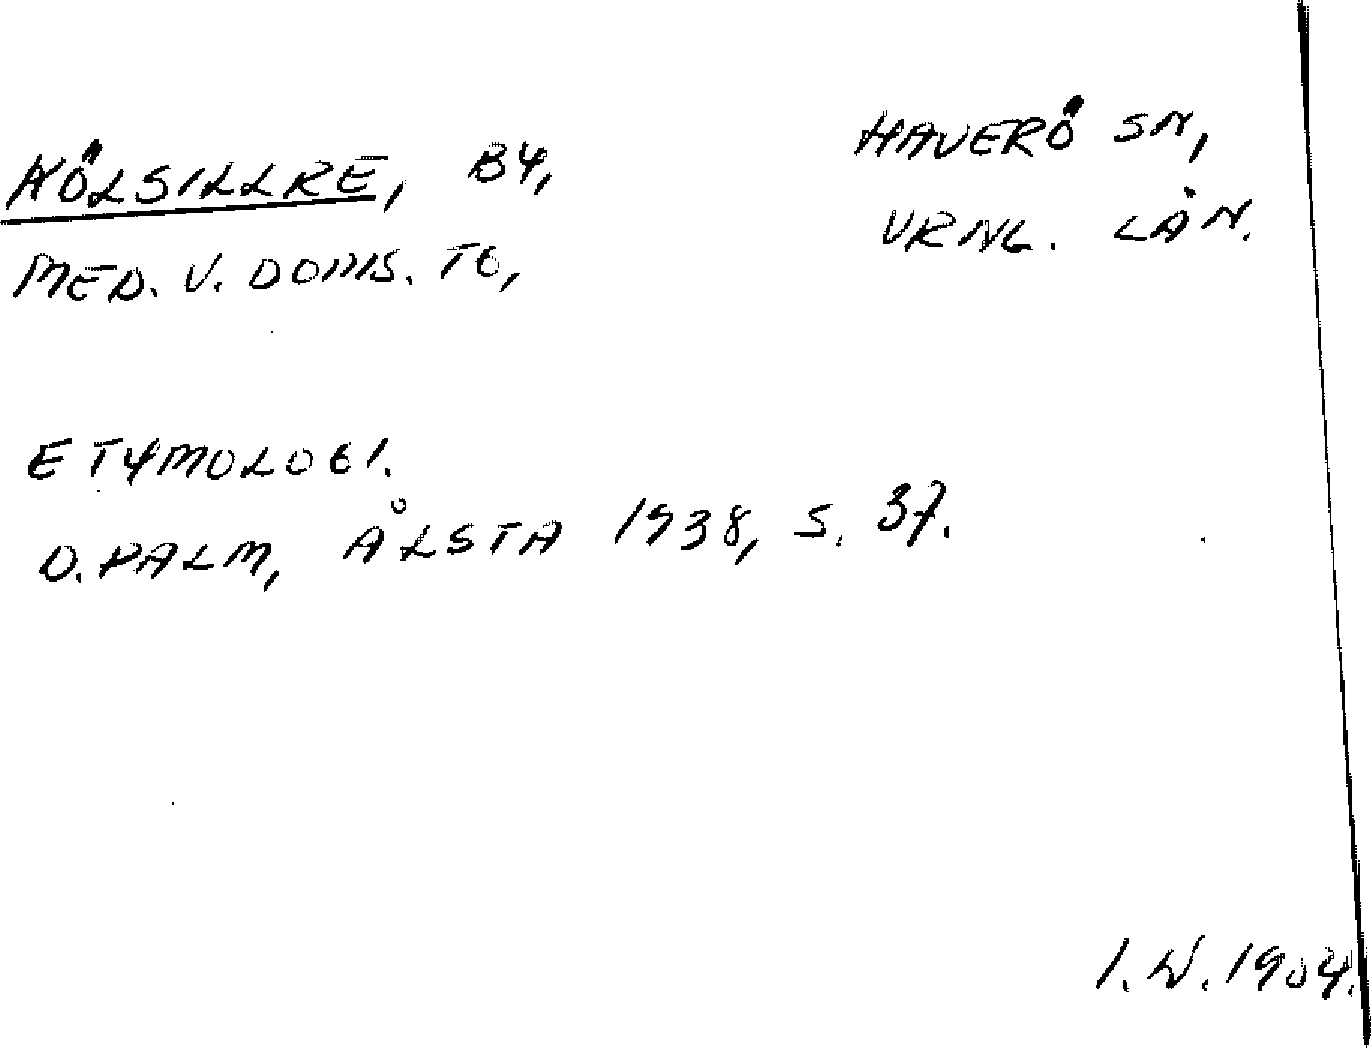 KÖLSILLRE, BY,
HAVERÖ SN,
MED. V. DOMS. TG,
VRNL. LÄN.
ETYMOLOGI.
D. PALM, ÅLSTA 1938, S. 37.
I. W. 1904.